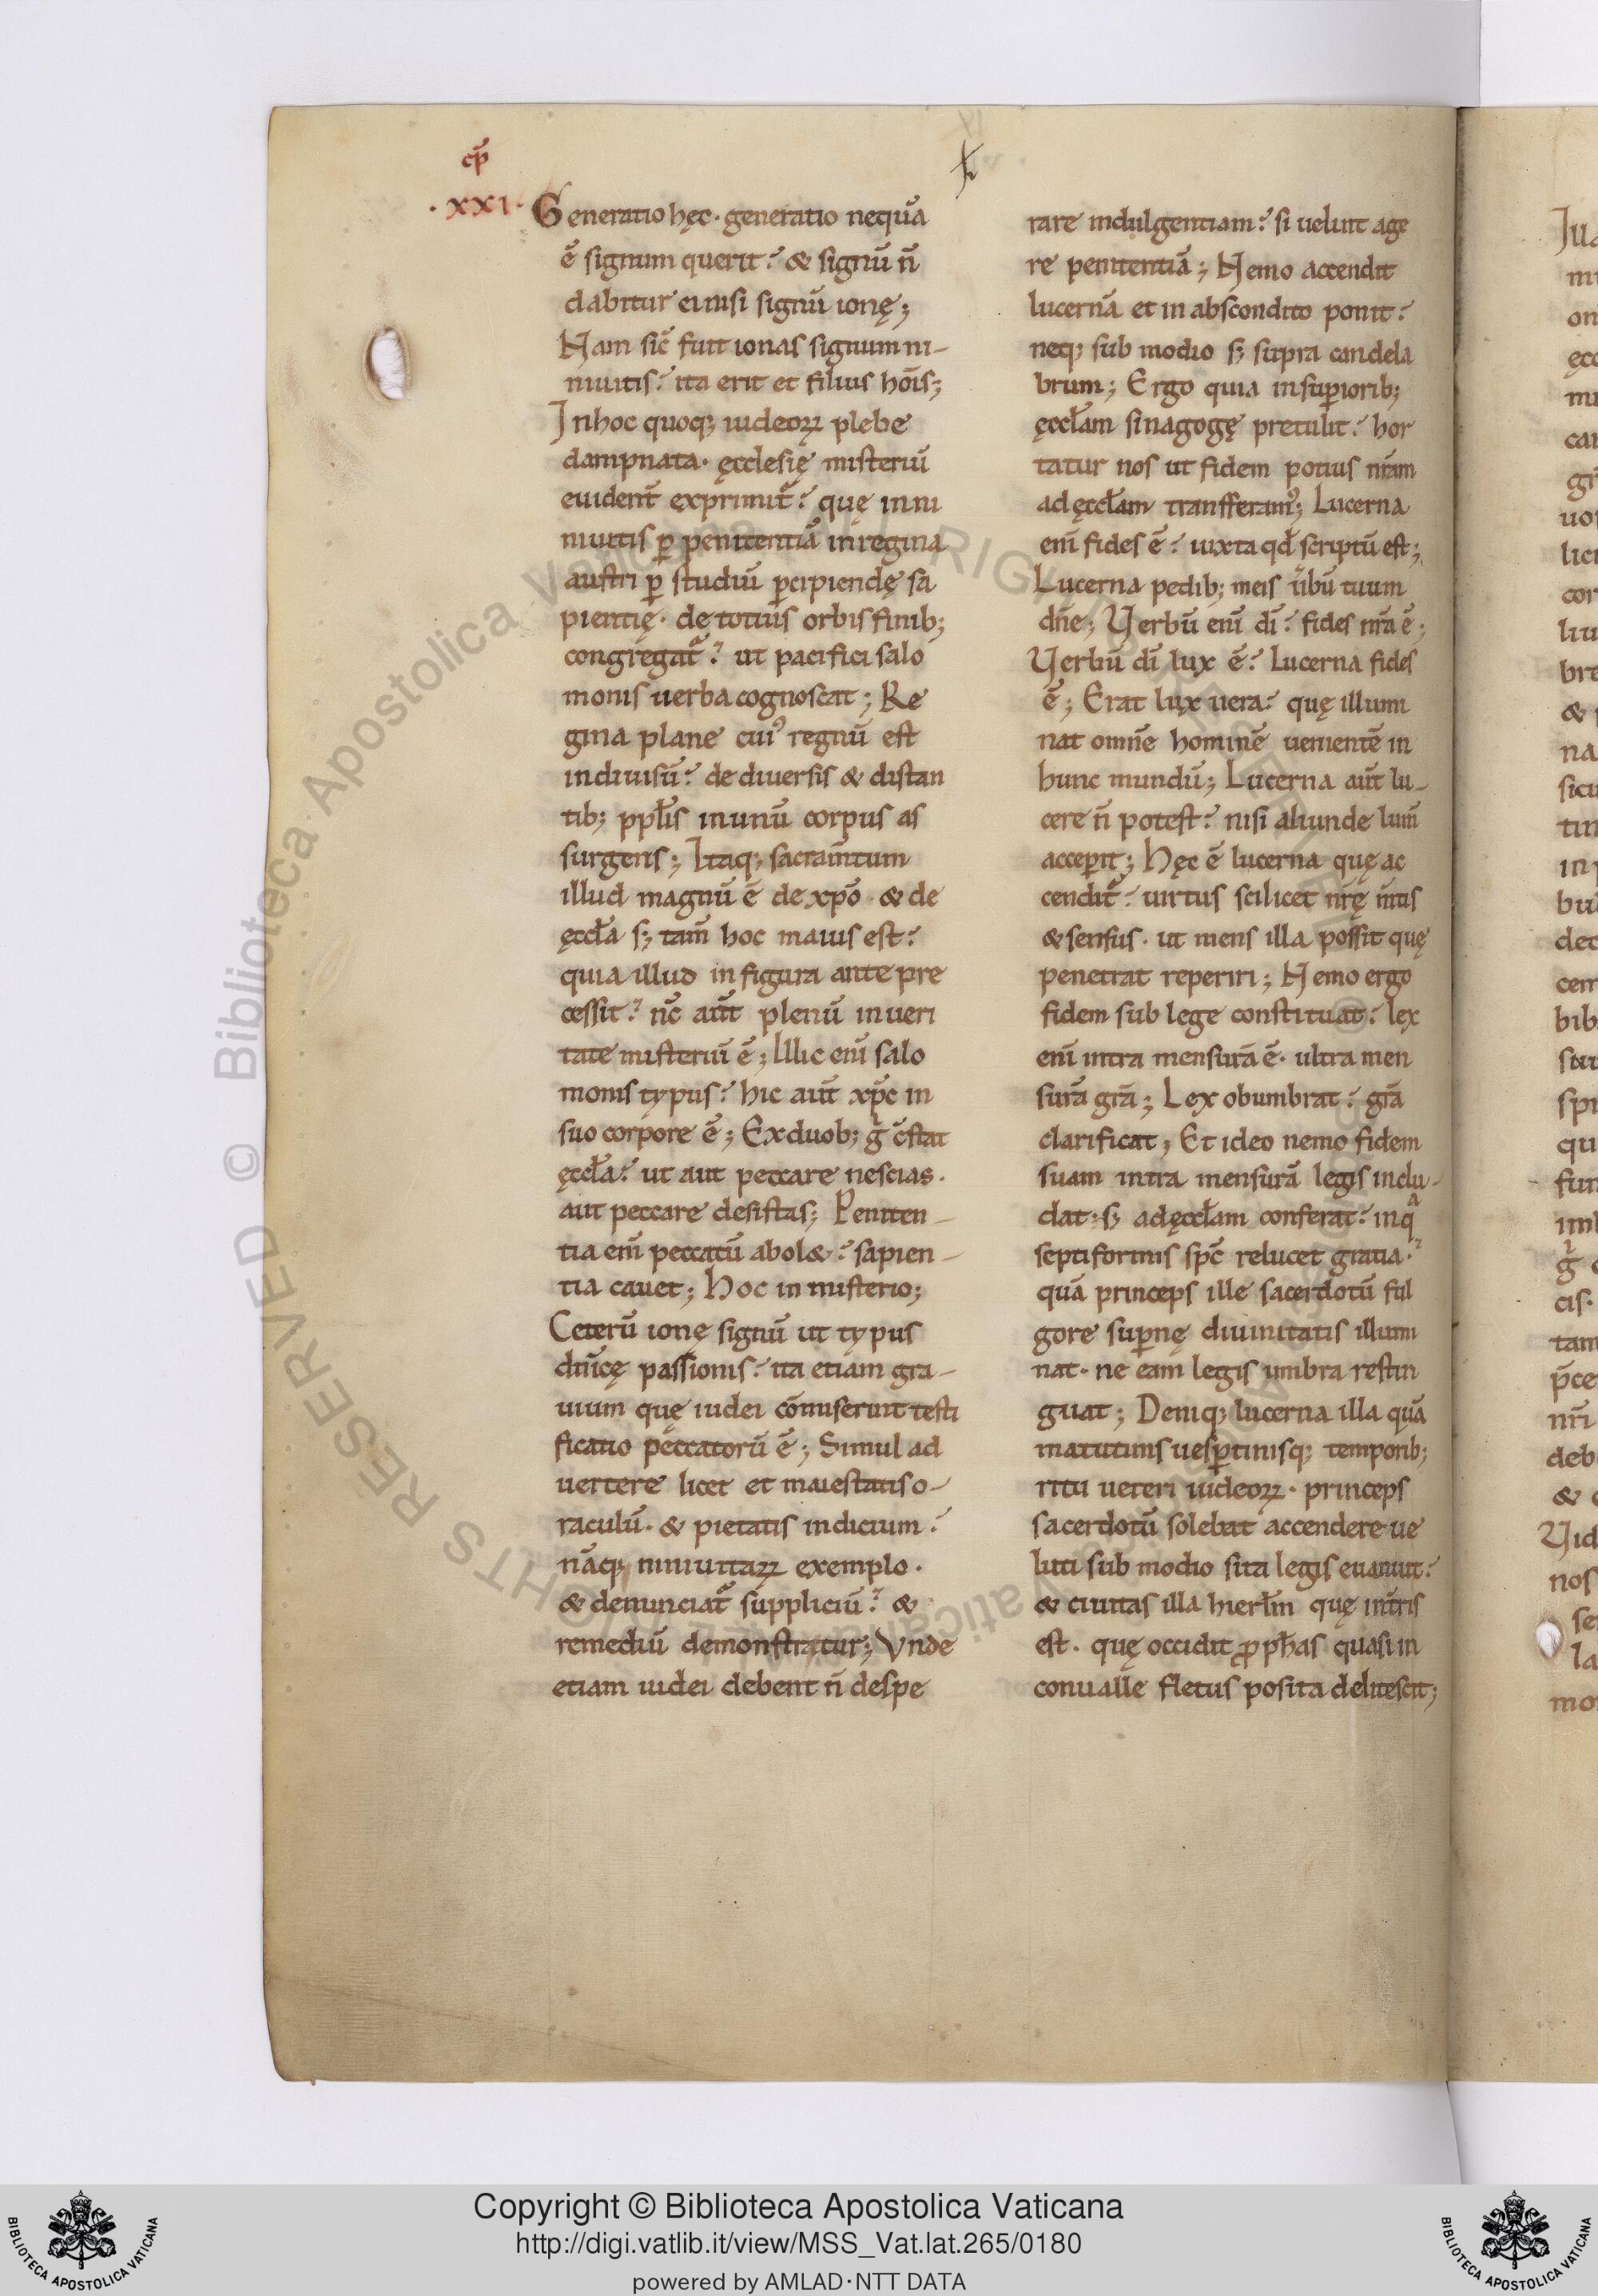 cp̄
·xxi·
Generatio hęc· generatio nequā
ē signum querit? & signū n̄
dabitur ei nisi signū ionę;
Nam sic̄ fuit ionas signum ni-
niuitis? ita erit et filius hoīs;
In hoc quoq; iudeoꝝ plebe
dampnata· ęcclesię misteriū
euident̄ exprimit᷑? quę in ni
niuitis ꝑ penitentiā in regina
austri ꝑ studiū ꝑcipiendę sa
pientię· de totius orbis finib;
congregat᷑? ut pacifici salo
monis uerba cognoscat; Re
gina plane cui᾿ regnū est
indiuisū? de diuersis & distan
tib; ppl̄is in unū corpus as
surgens; Itaq; sacram̄tum
illud magnū ē de xp̄o· & de
ęccl̄a s; tam̄ hoc maius est?
quia illud in figura ante pre
cessit? nc̄ aūt plenū in ueri
tate misteriū ē; Illic enī salo
monis typus? hic aūt xp̄c in
suo corpore ē; Ex duob; gͥ c̄stat
ęccl̄a? ut aut peccare nescias·
aut peccare desistas; Peniten-
tia em̄ peccatū abol&? sapien-
tia cauet; Hoc in misterio;
Ceterū ionę signū ut typus
dn̄icę passionis? ita etiam gra-
uium quę iudei cōmiserunt testi
ficatio peccatorū ē; Simul ad
uertere licet et maiestatis o-
raculū· & pietatis indicium?
nāq; niniuitaꝝ exemplo·
& denunciat᷑ suppliciū? &
remediū demonstratur; Vnde
etiam iudei debent n̄ despe
rare indulgentiam? si uelint age
re penitentiā; Nemo accendit
lucernā et in abscondito ponit?
neq; sub modio s; supra candela
brum; Ergo quia in suꝑiorib;
ęccl̄am sinagogę pretulit? hor
tatur nos ut fidem potius nr̄am
ad ęccl̄am transferam᾿; Lucerna
enī fides ē? iuxta qd̄ scriptū est;
Lucerna pedib; meis ūbū tuum
dn̄e; Verbū enī dī? fides nr̄a ē;
Verbū dī lux ē? Lucerna fides
ē; Erat lux uera? quę illumi
nat omn̄e hominē uenientē in
hunc mundū; Lucerna aūt lu-
cere n̄ potest? nisi aliunde lum̄
acceꝑit; Hęc ē lucerna quę ac
cendit᷑? uirtus scilicet nr̄ę m̄tis
& sensus· ut mens illa possit quę
penetrat reperiri; Nemo ergo
fidem sub lege constituat? lex
enī intra mensurā ē· ultra men
surā gr̄a; Lex obumbrat? gr̄a
clarificat; Et ideo nemo fidem
suam intra mensurā legis inclu-
dat· s; ad ęccl̄am conferat? in qᵃ
septiformis sp̄c relucet gratia?
quā princeps ille sacerdotū ful
gore suꝑnę diuinitatis illumi
nat· ne eam legis umbra restin
guat; Deniq; lucerna illa quā
matutinis uesꝑtinisq; temporib;
ritu ueteri iudeoꝝ· princeps
sacerdotū solebat accendere ue
luti sub modio sita legis euanuit?
& ciuitas illa hierl̄m quę in t̄ris
est· quę occidit ꝓph̄as quasi in
conualle fletus posita delitescit;
Copyright © Biblioteca Apostolica Vaticana
http://digi.vatlib.it/view/MSS_Vat.lat.265/0180
powered by AMLAD·NTT DATA
BIBLIOTECA APOSTOLICA VATICANA
BIBLIOTECA APOSTOLICA VATICANA